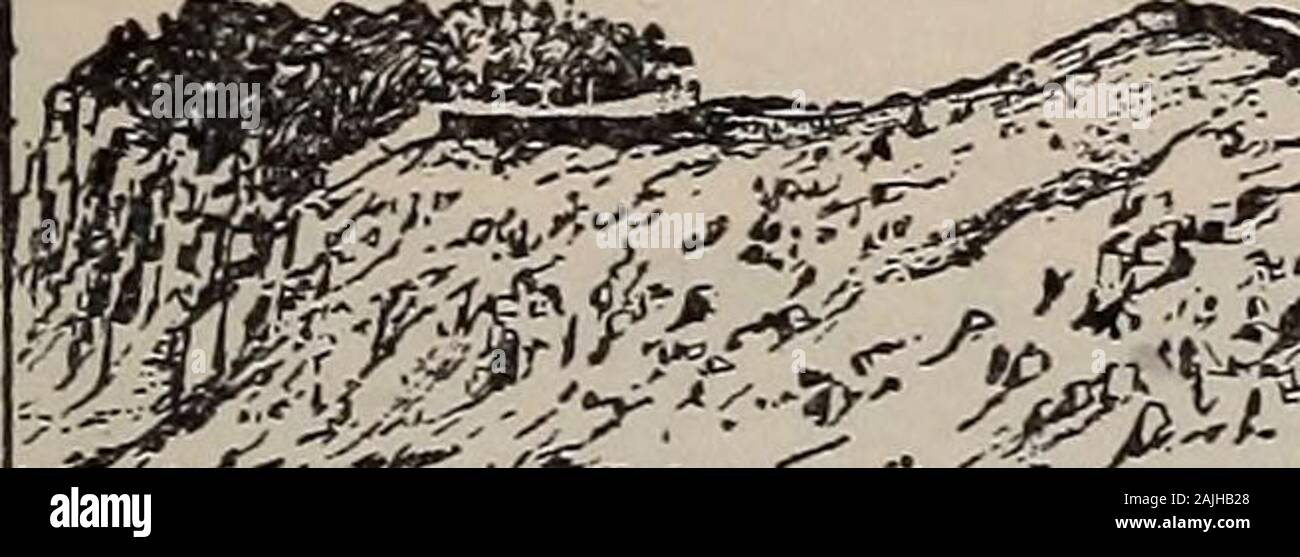 alamy
alamy
Image ID: 2AJHB28
www.alamy.com